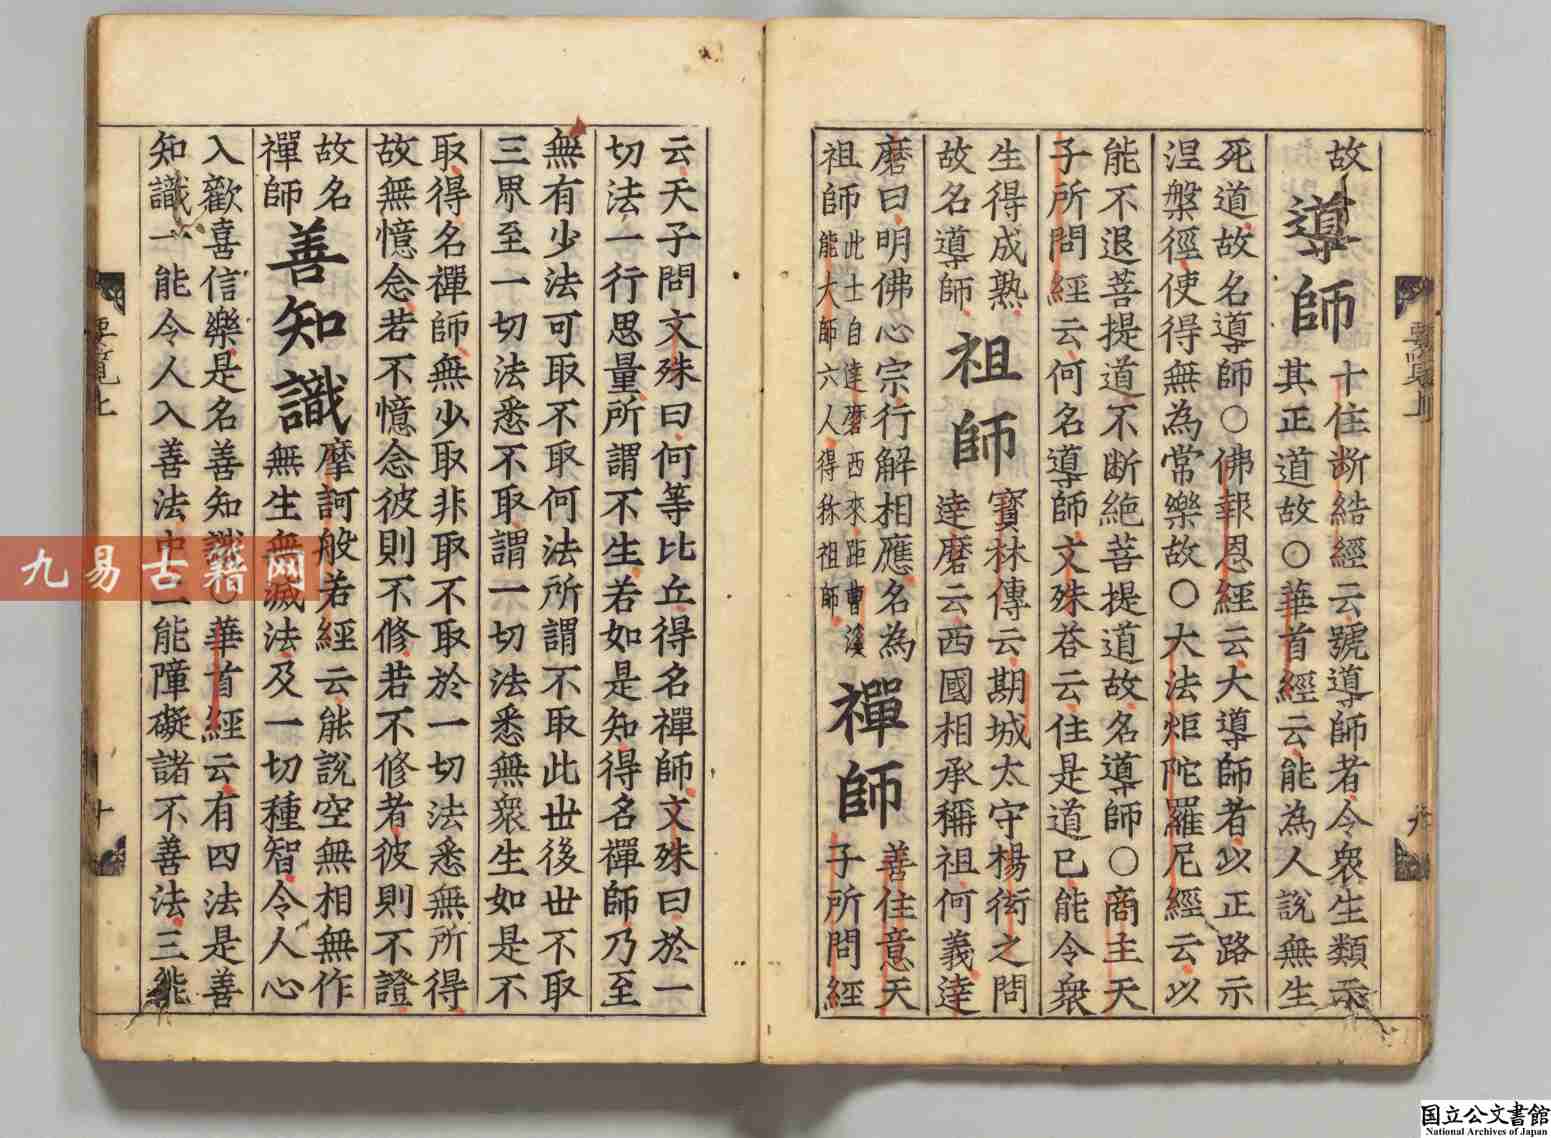 故
導師
十住断結經云號導師者令衆生類示
其正道故○華首經云能為人說無生
死道故名導師○佛報恩經云大導師者以正路示
涅槃徑使得無為常樂故○大法炬陀羅尼經云以
能不退菩提道不断絶菩提道故名導師○商主天
子所問經云何名導師文殊荅云住是道已能令衆
生得成熟
故名導師
祖師
寶林傳云期城太守楊衒之問
達磨云西國相承稱祖何義達
磨曰明佛心宗行解相應名為
祖師
此土自達磨西來距曹溪
能大師六人得秼祖師
禪師
善住意天
子所問經
要覽上
九
云天子問文殊曰何等比丘得名禪師文殊曰於一
切法一行思量所謂不生若如是知得名禪師乃至
無有少法可取不取何法所謂不取此世後世不取
三界至一切法悉不取謂一切法悉無衆生如是不
取得名禪師無少取非取不取於一切法悉無所得
故無憶念若不憶念彼則不修若不修者彼則不證
故名
禪師
善知識
摩訶般若經云能說空無相無作
無生無滅法及一切種智令人心
入歡喜信樂是名善知識○華首經云有四法是善
知識一能令人入善法中二能障礙諸不善法三能
要覽上
十
九易古籍网
国立公文書館
National Archives of Japan